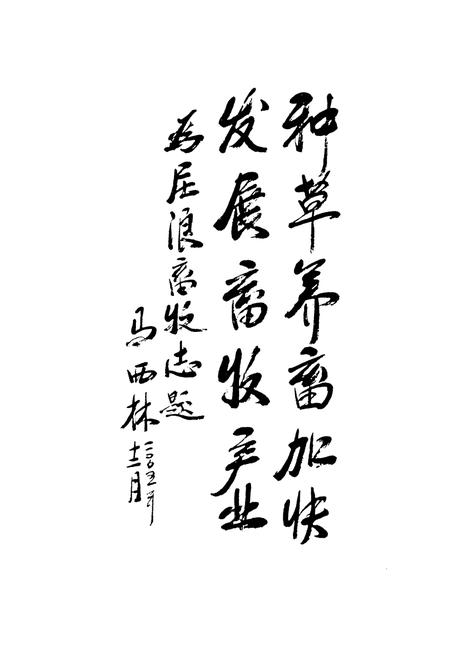 种草养畜加快
发展畜牧产业
为庄浪畜牧志题
马西林
二〇〇五年
十二月